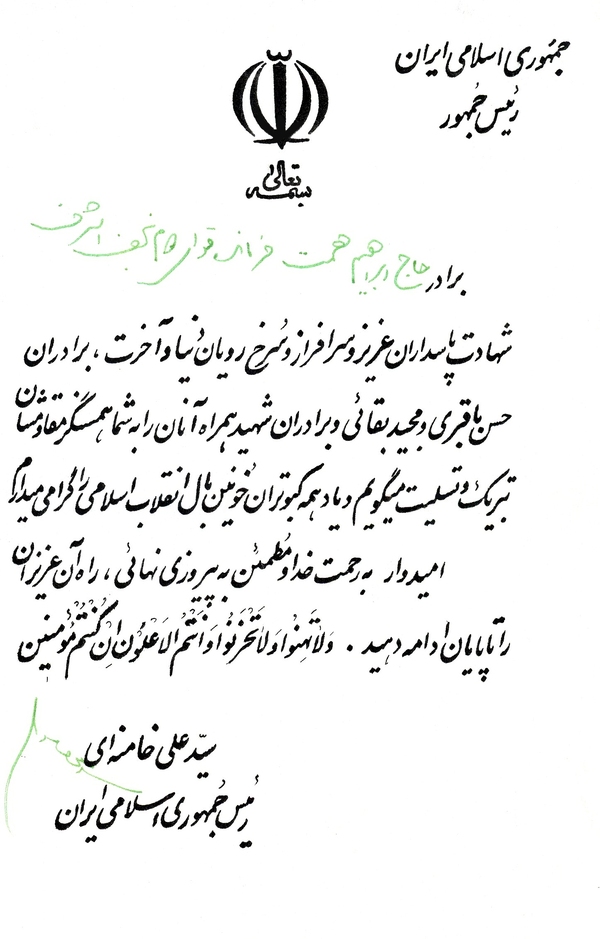 جمهوری اسلامی ایران
رئیس جمهور
بسمه تعالی
برادر حاج ابراهیم همت فرمانده قوای نجف اشرف
شهادت پاسداران عزیز و سرافراز و سُرخ رویان دُنیا و آخرت ، برادران
حسن باقری و مجید بقائی و برادران شهید همراه آنان را به شما همسنگر مقاومشان
تبریک و تسلیت میگویم و یاد همه کبوتران خونین بال انقلاب اسلامی را گرامی میدارم
امیدوار به رحمت خدا و مُطمئن به پیروزی نهائی ، راه آن عزیزان
را تا پایان ادامه دهید . وَلاتَهِنُوا وَلاتَحْزَنُوا وَ اَنْتُمُ الاَعْلَوُن اِنْ کُنْتُمْ مُؤْمِنین
سیّد علی خامنه‌ای
رئیس جُمهوری اسلامی ایران